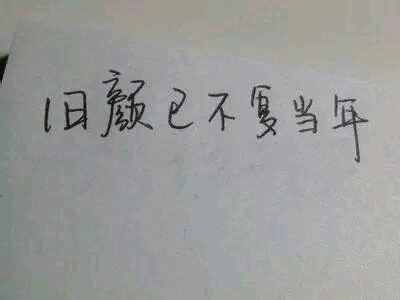 旧颜已不复当年